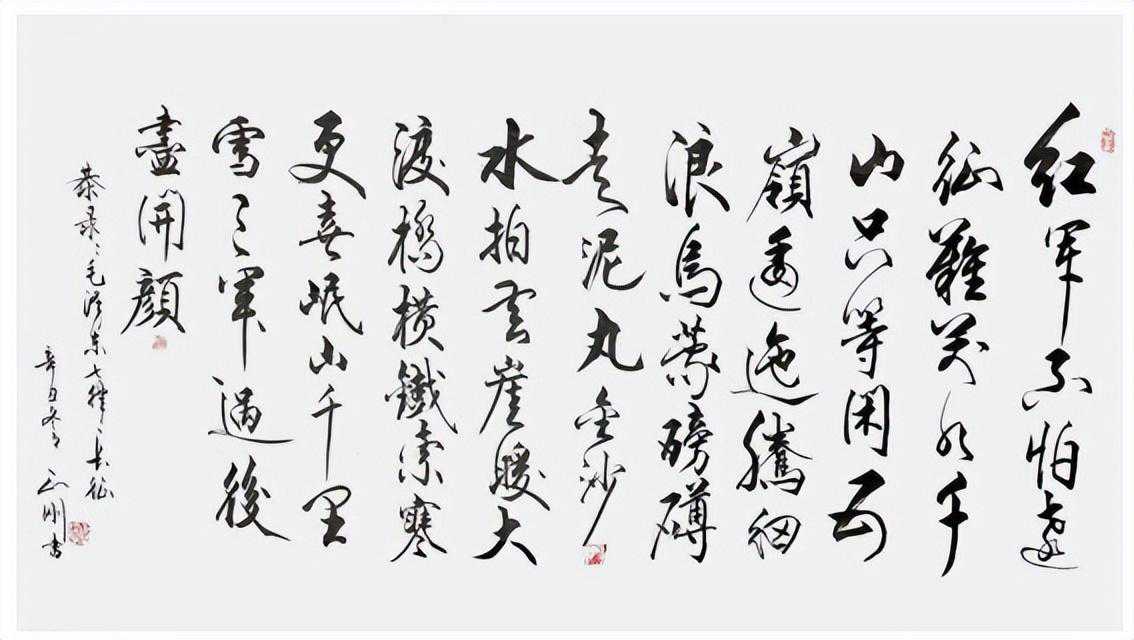 紅軍不怕遠
征難萬水千
山只等閑五
嶺逶迤騰細
浪烏蒙磅礴
走泥丸金沙
水拍云崖暖大
渡橋橫鐵索寒
更喜岷山千里
雪三軍過後
盡開顏
恭录毛泽东七律長征
辛丑冬 正刚书